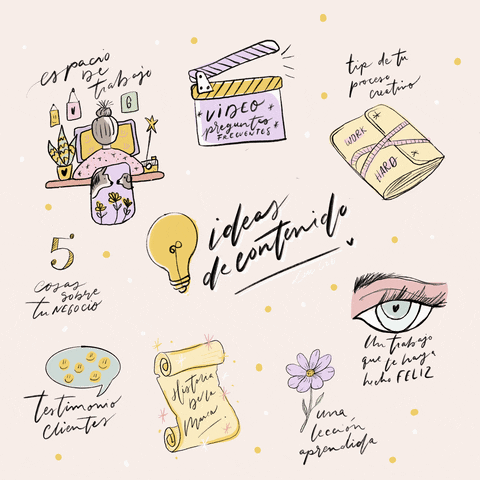 espacio
DE
trabajo
6
VIDEO
preguntas
FRECUENTES
tip de tu
proceso
creativo
WORK
HARD
ideas
de contenido
5
cosas
sobre
tu NEGOCIO
Un trabajo
que te haya
hecho FELIZ
testimonio
clientes
Historia
De la
Marca
una
lección
aprendida